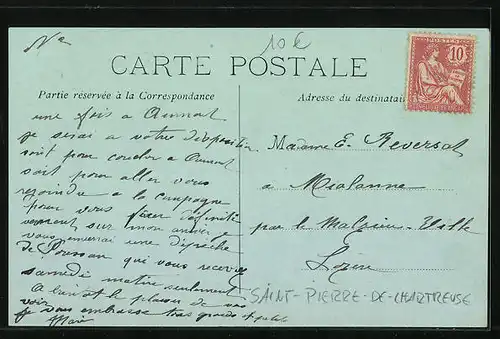 10 €
CARTE POSTALE
Partie réservée à la Correspondance
Adresse du destinatai
POSTES
10
une fois a Aumont
je serai a votre disposition
soit pour coucher a Aumont
soit pour aller vous
rejoindre a la campagne
pour vous fixer
sur mon arrivée
vous enverrai une dépêche
de qui vous recevrez
samedi matin seulement
le plaisir de
voir
je vous embrasse tres grands et petits
Marie
Madame E. Reversat
a
par le Malzieu-Ville
Lozère
SAINT-PIERRE-DE-CHARTREUSE